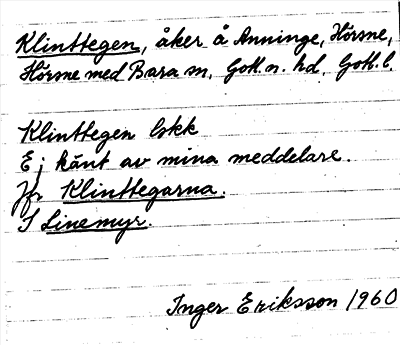 Klinttegen, åker å Anninge, Hörsne,
Hörsne med Bara sn, Gotl. n. hd, Gotl. l.
Klinttegen lskk
Ej känt av mina meddelare.
Jfr Klinttegarna.
I Linemyr.
Inger Eriksson 1960